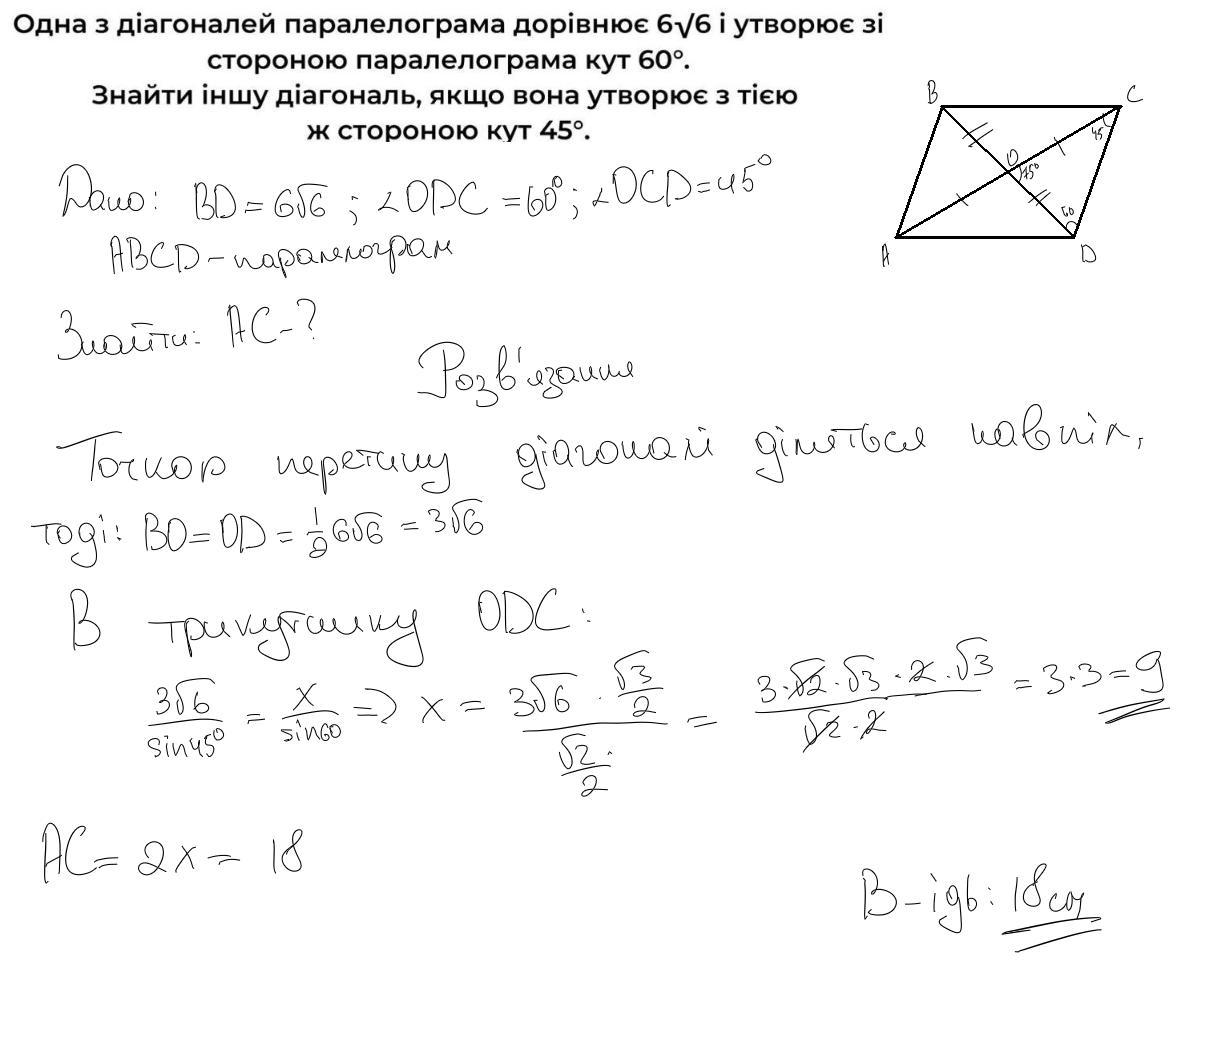 Одна з діагоналей паралелограма дорівнює 6√6 і утворює зі
стороною паралелограма кут 60°.
Знайти іншу діагональ, якщо вона утворює з тією
ж стороною кут 45°.
B C
45
O 75°
60
A D
Дано: BD = 6√6 ; ∠ODC = 60° ; ∠OCD = 45°
ABCD - паралелограм
Знайти: AC - ?
Розв'язання
Точкою перетину діагоналі діляться навпіл,
тоді: BO = OD = 1/2 6√6 = 3√6
В трикутнику ODC:
3√6/sin45° = x/sin60 => x = (3√6 · √3/2)/(√2/2) = (3·√2·√3·2·√3)/(√2·2) = 3·3 = 9
AC = 2x = 18
В-ідь: 18 см